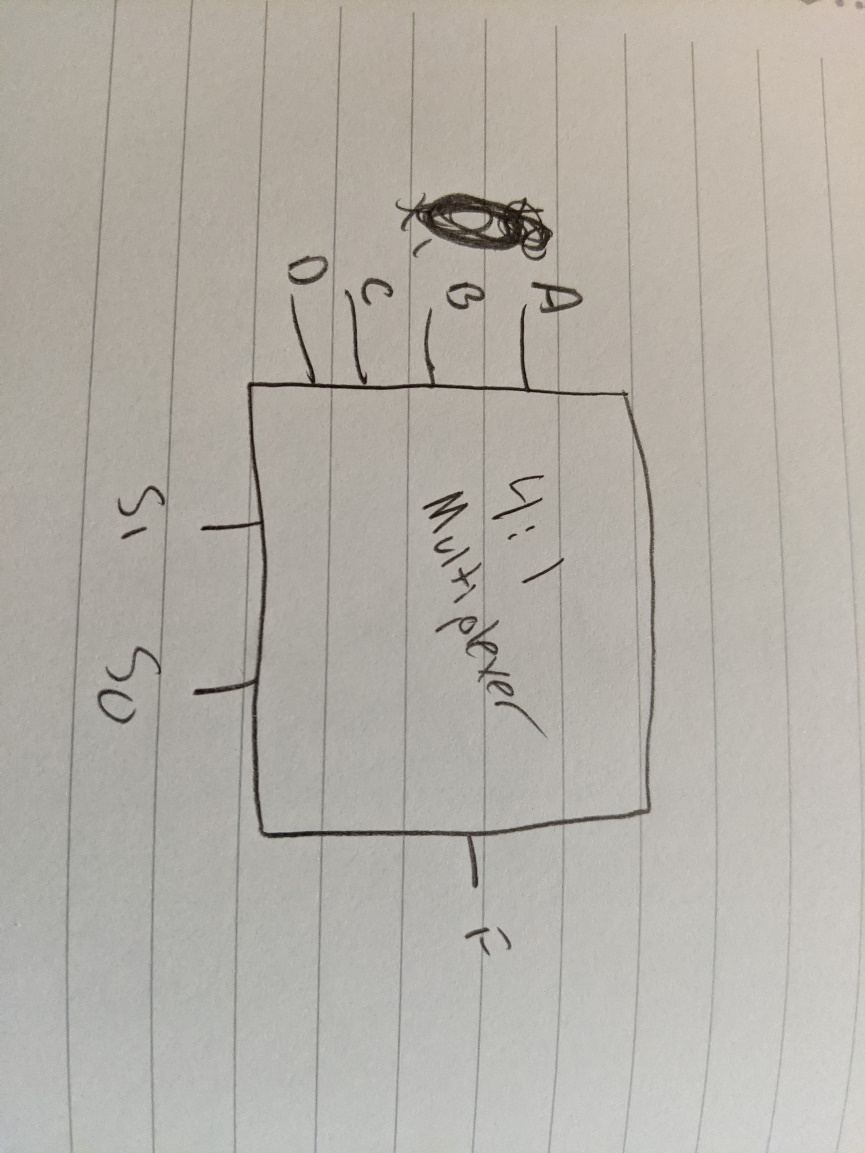 A
B
C
D
4:1
Multiplexer
F
S1
S0